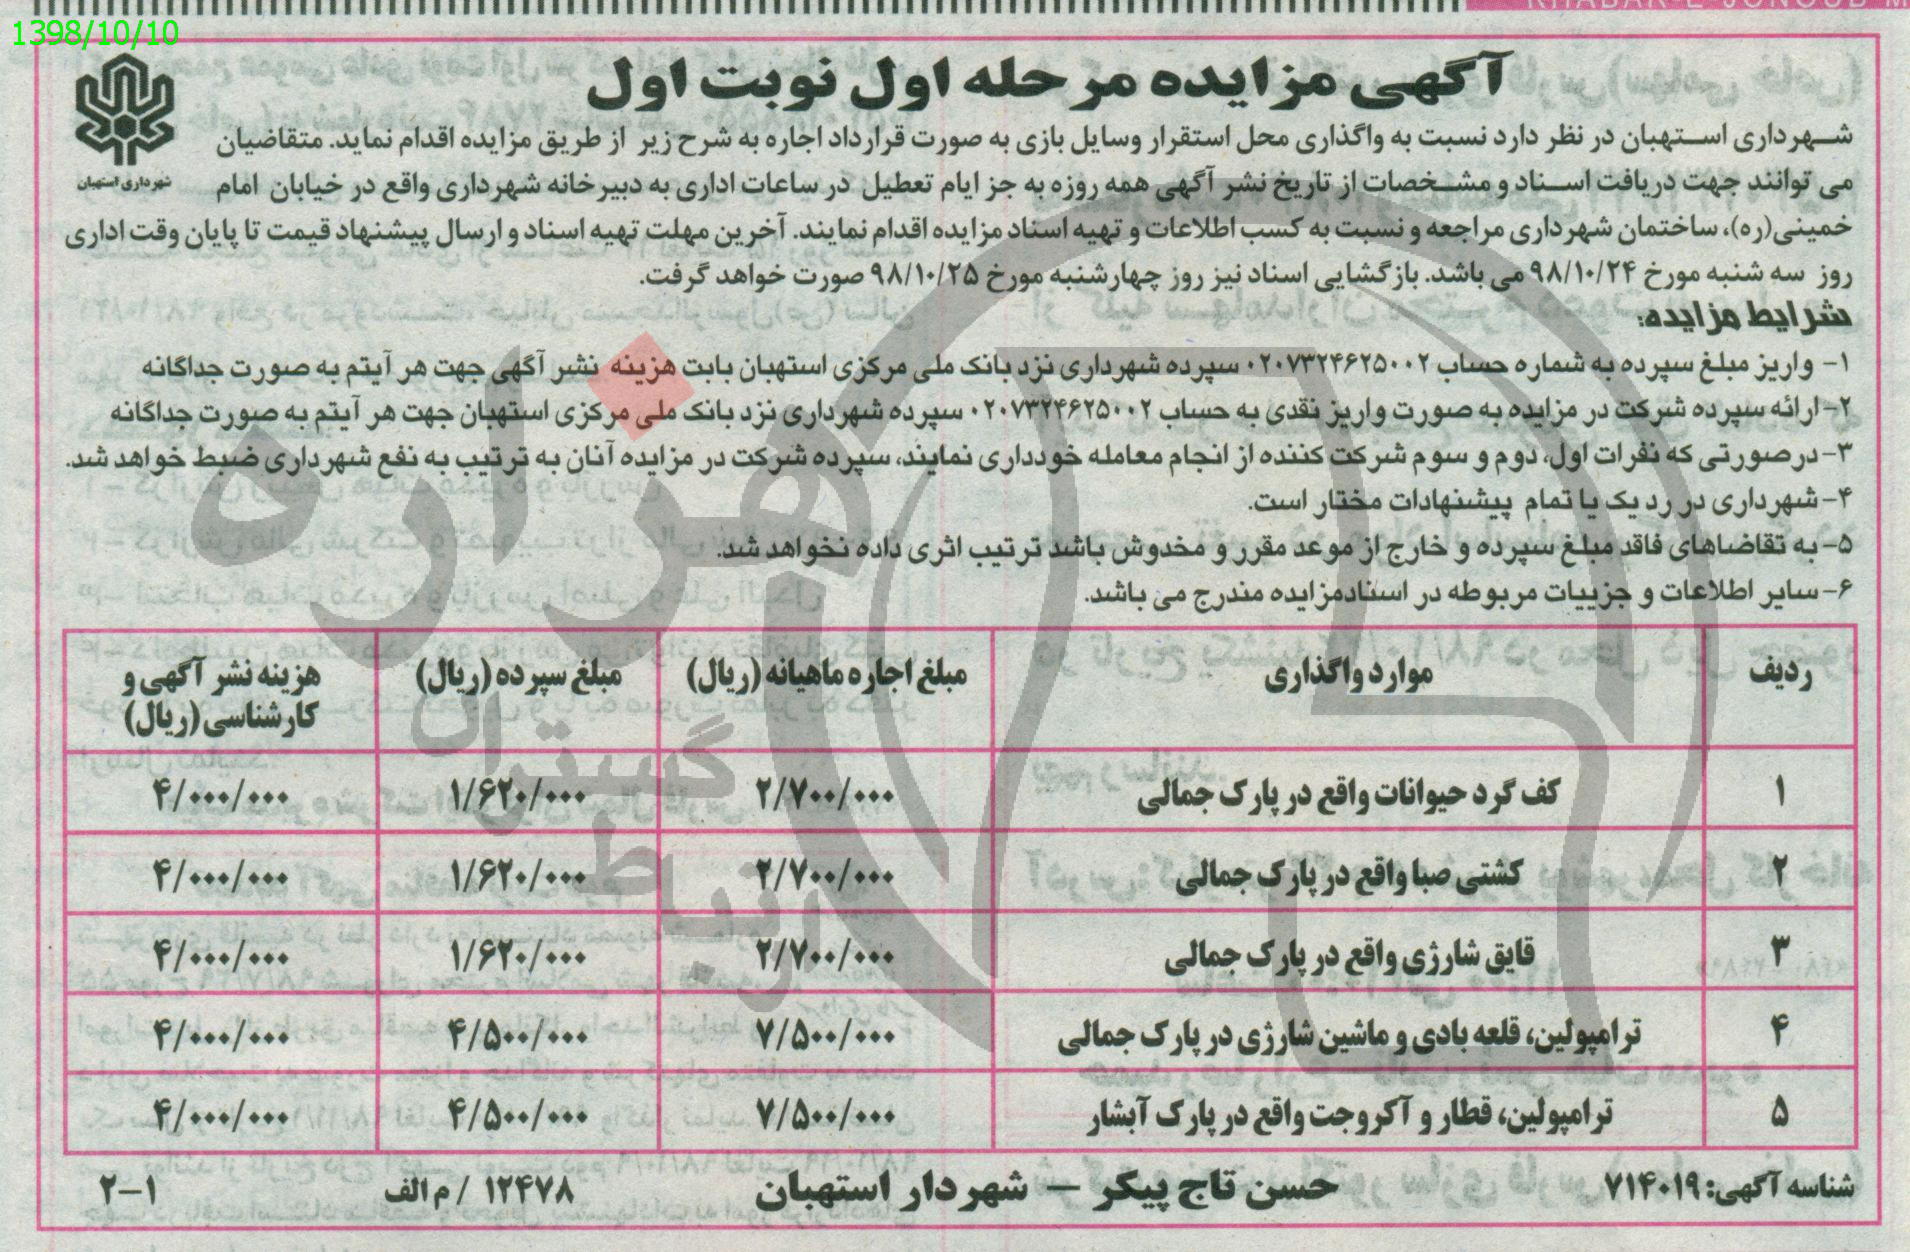 KHABAR-E-JONOUB
1398/10/10
آگهی مزایده مرحله اول نوبت اول
شهرداری استهبان
شهرداری استهبان در نظر دارد نسبت به واگذاری محل استقرار وسایل بازی به صورت قرارداد اجاره به شرح زیر از طریق مزایده اقدام نماید. متقاضیان
می توانند جهت دریافت اسناد و مشخصات از تاریخ نشر آگهی همه روزه به جز ایام تعطیل در ساعات اداری به دبیرخانه شهرداری واقع در خیابان امام
خمینی(ره)، ساختمان شهرداری مراجعه و نسبت به کسب اطلاعات و تهیه اسناد مزایده اقدام نمایند. آخرین مهلت تهیه اسناد و ارسال پیشنهاد قیمت تا پایان وقت اداری
روز سه شنبه مورخ ۹۸/۱۰/۲۴ می باشد. بازگشایی اسناد نیز روز چهارشنبه مورخ ۹۸/۱۰/۲۵ صورت خواهد گرفت.
شرایط مزایده:
۱- واریز مبلغ سپرده به شماره حساب ۰۲۰۷۳۲۴۶۲۵۰۰۲ سپرده شهرداری نزد بانک ملی مرکزی استهبان بابت هزینه نشر آگهی جهت هر آیتم به صورت جداگانه
۲- ارائه سپرده شرکت در مزایده به صورت واریز نقدی به حساب ۰۲۰۷۳۲۴۶۲۵۰۰۲ سپرده شهرداری نزد بانک ملی مرکزی استهبان جهت هر آیتم به صورت جداگانه
۳- درصورتی که نفرات اول، دوم و سوم شرکت کننده از انجام معامله خودداری نمایند، سپرده شرکت در مزایده آنان به ترتیب به نفع شهرداری ضبط خواهد شد.
۴- شهرداری در رد یک یا تمام پیشنهادات مختار است.
۵- به تقاضاهای فاقد مبلغ سپرده و خارج از موعد مقرر و مخدوش باشد ترتیب اثری داده نخواهد شد.
۶- سایر اطلاعات و جزییات مربوطه در اسناد مزایده مندرج می باشد.
ردیف موارد واگذاری مبلغ اجاره ماهیانه (ریال) مبلغ سپرده (ریال) هزینه نشر آگهی و
کارشناسی (ریال)
۱ کف گرد حیوانات واقع در پارک جمالی ۲/۷۰۰/۰۰۰ ۱/۶۲۰/۰۰۰ ۴/۰۰۰/۰۰۰
۲ کشتی صبا واقع در پارک جمالی ۲/۷۰۰/۰۰۰ ۱/۶۲۰/۰۰۰ ۴/۰۰۰/۰۰۰
۳ قایق شارژی واقع در پارک جمالی ۲/۷۰۰/۰۰۰ ۱/۶۲۰/۰۰۰ ۴/۰۰۰/۰۰۰
۴ ترامپولین، قلعه بادی و ماشین شارژی در پارک جمالی ۷/۵۰۰/۰۰۰ ۴/۵۰۰/۰۰۰ ۴/۰۰۰/۰۰۰
۵ ترامپولین، قطار و آکروجت واقع در پارک آبشار ۷/۵۰۰/۰۰۰ ۴/۵۰۰/۰۰۰ ۴/۰۰۰/۰۰۰
شناسه آگهی: ۷۱۴۰۱۹ حسن تاج پیکر – شهردار استهبان ۱۲۴۷۸ / م الف ۲-۱
هزاره
گستران
ارتباط